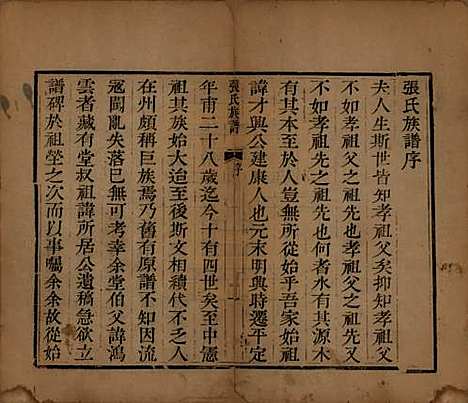 張氏族譜序
夫人生斯世皆知孝祖父矣抑知孝祖父
不如孝祖父之祖先也抑知孝祖父之祖先
不如孝祖先之祖先也何者水有其源木
有其本至於人豈無所從始乎吾家始祖
諱才興公建康人也元末明興時遷平定
張氏族譜 序 一
年甫二十八歲迄今十有四世矣至中憲
祖其族始大迨至後斯文相續代不乏人
在州頗稱巨族焉乃舊有原譜不知因流
冦闖亂失落已無可考幸余堂伯父諱鴻
雲者藏有堂叔祖諱所居公遺稿急欲立
譜碑於祖塋之次而以事囑余余故從始